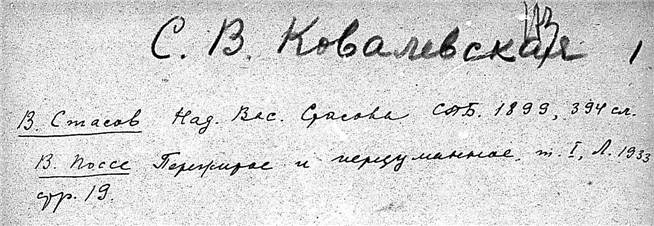 С. В. Ковалевская 1
В. Стасов Над. Вас. Стасова СПБ. 1899, 394 сл.
В. Поссе Пережитое и передуманное, т. I, Л. 1933
стр. 19.